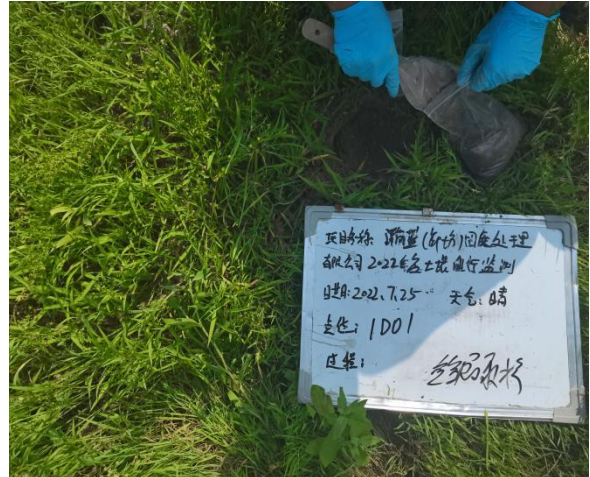 项目名称: 瀚蓝(廊坊)固废处理
有限公司2022年度土壤自行监测
日期: 2022.7.25 天气: 晴
点位: 1D01
过程: